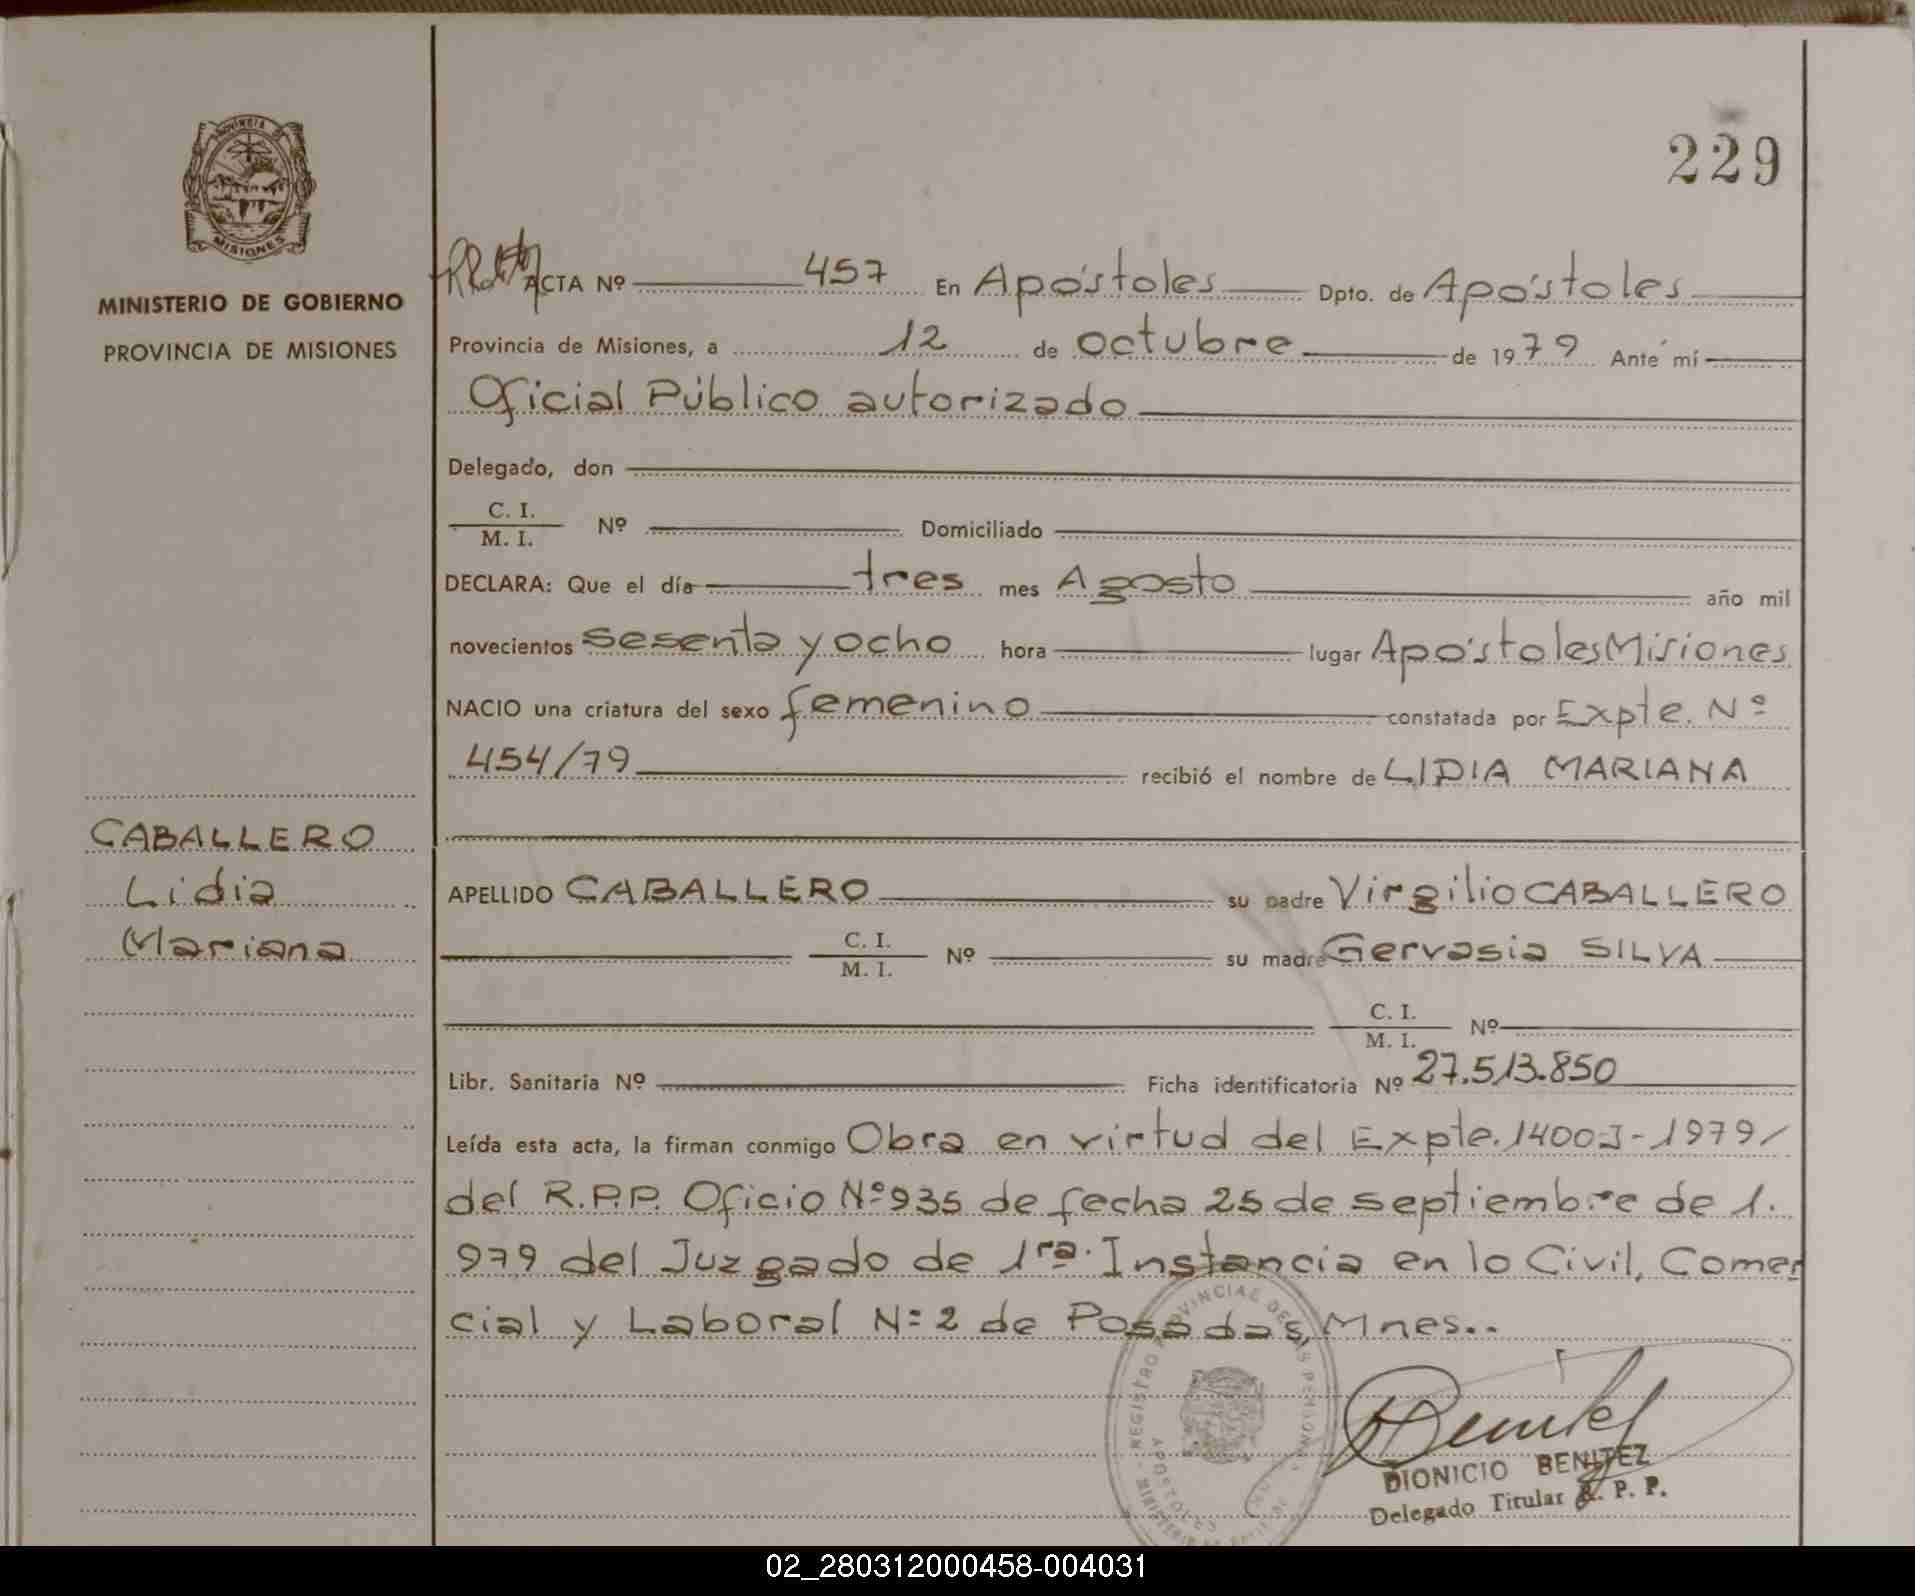 PROVINCIA DE
MISIONES
MINISTERIO DE GOBIERNO
PROVINCIA DE MISIONES
CABALLERO
Lidia
Mariana
229
ACTA Nº 457 En Apóstoles Dpto. de Apóstoles
Provincia de Misiones, a 12 de octubre de 1979 Ante mí
Oficial Público autorizado
Delegado, don
C. I.
M. I. Nº Domiciliado
DECLARA: Que el día tres mes Agosto año mil
novecientos sesenta y ocho hora lugar Apóstoles Misiones
NACIO una criatura del sexo femenino constatada por Expte. Nº
454/79 recibió el nombre de LIDIA MARIANA
APELLIDO CABALLERO su padre Virgilio CABALLERO
C. I.
M. I. Nº su madre Gervasia SILVA
C. I.
M. I. Nº
Libr. Sanitaria Nº Ficha identificatoria Nº 27.513.850
Leída esta acta, la firman conmigo Obra en virtud del Expte. 1400J-1979/
del R.P.P. Oficio Nº 935 de fecha 25 de septiembre de 1.
979 del Juzgado de 1ra. Instancia en lo Civil, Comer
cial y Laboral N:2 de Posadas, Mnes..
REGISTRO PROVINCIAL DE LAS PERSONAS
APOSTOLES
Benitez
DIONICIO BENITEZ
Delegado Titular R. P. P.
02_280312000458-004031